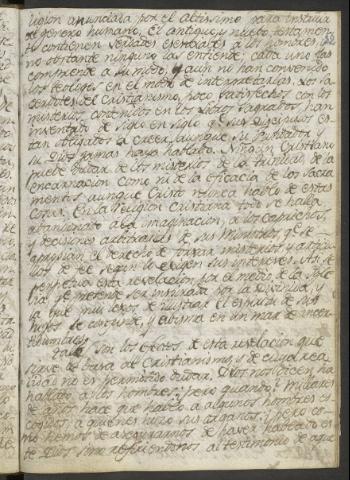 lusion anunciada por el altissimo para instruir
el genero humano, el antiguo, y nuevo testamen
to contienen verdades esenciales a los hombres, y
no obstante ninguno las entiende; cada uno las
comprende a su modo; y aun no han convenido
los teologos en el modo de interpretarlas. Los sa
cerdotes del Cristianismo, poco satisfechos con los
misterios contenidos en los libros sagrados han
inventado de siglo en siglo a sus Discipulos es
tan obligados a creer, aunque su fundador y
su Dios jamas haya hablado. Ningun Cristiano
puede dudar de los misterios de la trinidad, de la
encarnacion como ni de la eficacia de los Sacra
mentos aunque Cristo nunca hablo de estas
cosas. En la Religion cristiana todo se halla
abandonado a la imaginacion, a los caprichos,
y decisiones arbitrarias de sus Ministros que se
apropian el derecho de forxar misterios y articu
los de fe segun lo exigen sus intereses. Asi se
perpetua esta revelacion por el medio de la Igle
sia q pretende ser inspirada por la Divinidad, y
la que muy lexos de ilustrar el espiritu de sus
hijos le confunde, y abisma en un mar de incer
tidumbres.
Tales son los efectos de esta revelacion que
sirve de basa al Cristianismo, y de cuya rea
lidad no es permitido dudar. Dios nos dicen ha
hablado a los hombres; pero quando? Millares
de años hace que hablo a algunos hombres es
cogidos, a quienes hizo sus organos; pero co-
mo hemos de asegurarnos de haver hablado es
te Dios sino refiriendonos al testimonio de aque